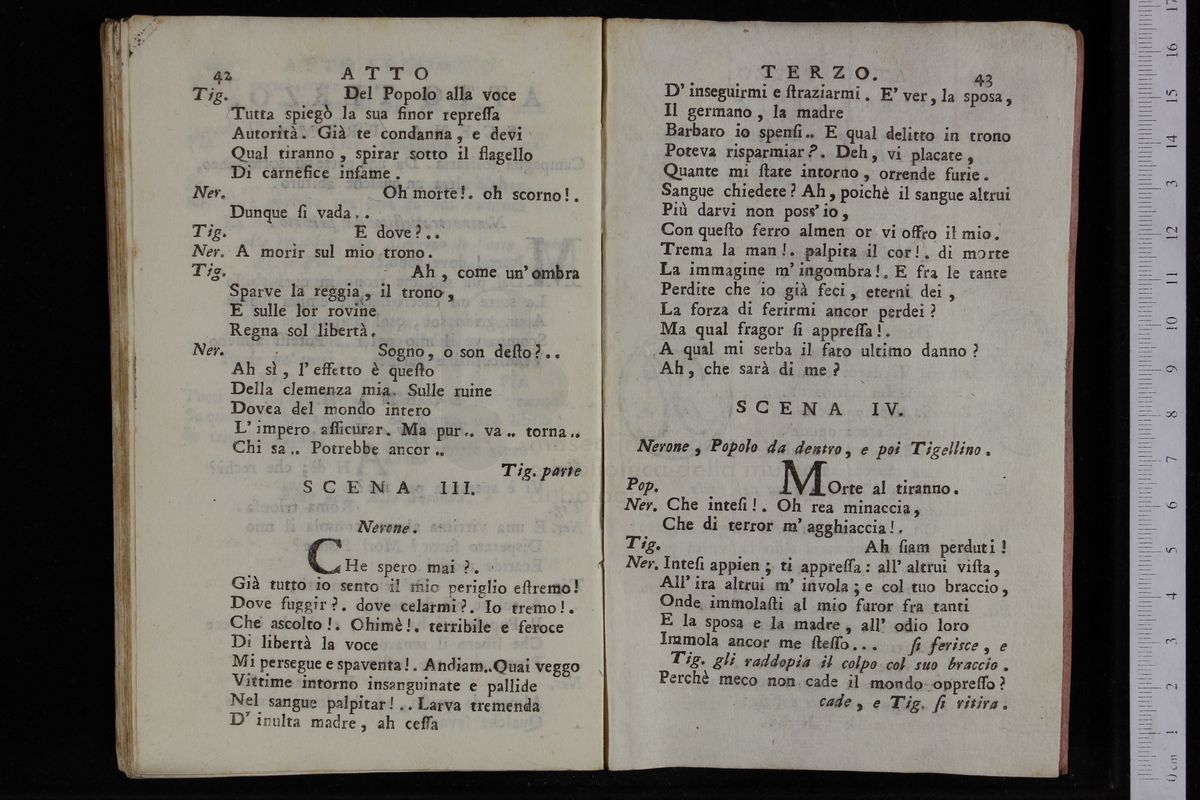 42 ATTO
Tig. Del Popolo alla voce
Tutta spiegò la sua finor repreſſa
Autorità. Già te condanna, e devi
Qual tiranno, spirar sotto il flagello
Di carnefice infame.
Ner. Oh morte!. oh scorno!.
Dunque ſi vada..
Tig. E dove?..
Ner. A morir sul mio trono.
Tig. Ah, come un'ombra
Sparve la reggia, il trono,
E sulle lor rovine
Regna sol libertà.
Ner. Sogno, o son deſto?..
Ah sì, l'effetto è queſto
Della clemenza mia. Sulle ruine
Dovea del mondo intero
L'impero aſſicurar. Ma pur.. va.. torna..
Chi sa.. Potrebbe ancor..
Tig. parte
SCENA III.
Nerone.
CHe spero mai?.
Già tutto io sento il mio periglio eſtremo!
Dove fuggir?. dove celarmi?. Io tremo!.
Che ascolto!. Ohimè!. terribile e feroce
Di libertà la voce
Mi persegue e spaventa!. Andiam..Quai veggo
Vittime intorno insanguinate e pallide
Nel sangue palpitar!.. Larva tremenda
D'inulta madre, ah ceſſa
TERZO. 43
D'inseguirmi e ſtraziarmi. E' ver, la sposa,
Il germano, la madre
Barbaro io spenſi.. E qual delitto in trono
Poteva risparmiar?. Deh, vi placate,
Quante mi ſtate intorno, orrende furie.
Sangue chiedete? Ah, poichè il sangue altrui
Più darvi non poss'io,
Con queſto ferro almen or vi offro il mio.
Trema la man!. palpita il cor!. di morte
La immagine m'ingombra!. E fra le tante
Perdite che io già feci, eterni dei,
La forza di ferirmi ancor perdei?
Ma qual fragor ſi appreſſa!.
A qual mi serba il fato ultimo danno?
Ah, che sarà di me?
SCENA IV.
Nerone, Popolo da dentro, e poi Tigellino.
Pop. MOrte al tiranno.
Ner. Che inteſi!. Oh rea minaccia,
Che di terror m'agghiaccia!.
Tig. Ah ſiam perduti!
Ner. Inteſi appien; ti appreſſa: all'altrui viſta,
All'ira altrui m'invola; e col tuo braccio,
Onde immolaſti al mio furor fra tanti
E la sposa e la madre, all'odio loro
Immola ancor me ſteſſo... ſi ferisce, e
Tig. gli raddopia il colpo col suo braccio.
Perchè meco non cade il mondo oppreſſo?
cade, e Tig. ſi ritira.